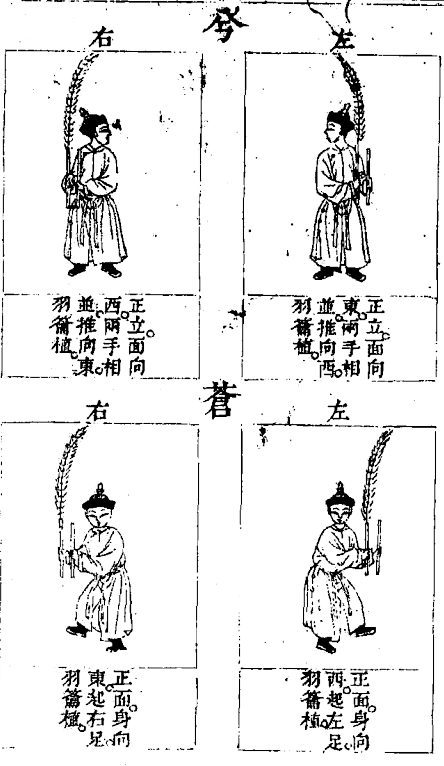 兮
左
正立。面向
東。兩手相
並推向西。
羽籥植。
右
正立。面向
西。兩手相
並推向東。
羽籥植。
蒼
左
正面。身向
西。起左足。
羽籥植。
右
正面。身向
東。起右足。
羽籥植。